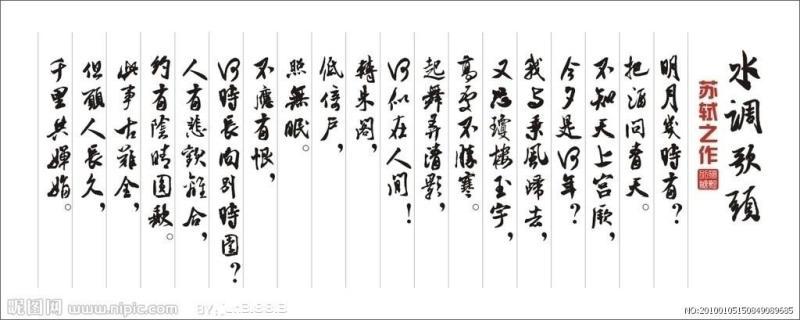 水调歌頭
苏轼之作
明月幾時有?
把酒問青天。
不知天上宫厥,
今夕是何年?
我与乘風歸去,
又恐瓊樓玉宇,
高處不勝寒。
起舞弄清影,
何似在人间!
轉朱阁,
低倚户,
照無眠。
不應有恨,
何時長向别時圆?
人有悲歡離合,
約有陰晴圆缺。
此事古難全,
但願人長久,
千里共嬋娟。
昵图网 www.nipic.com
NO:20100105150849089685